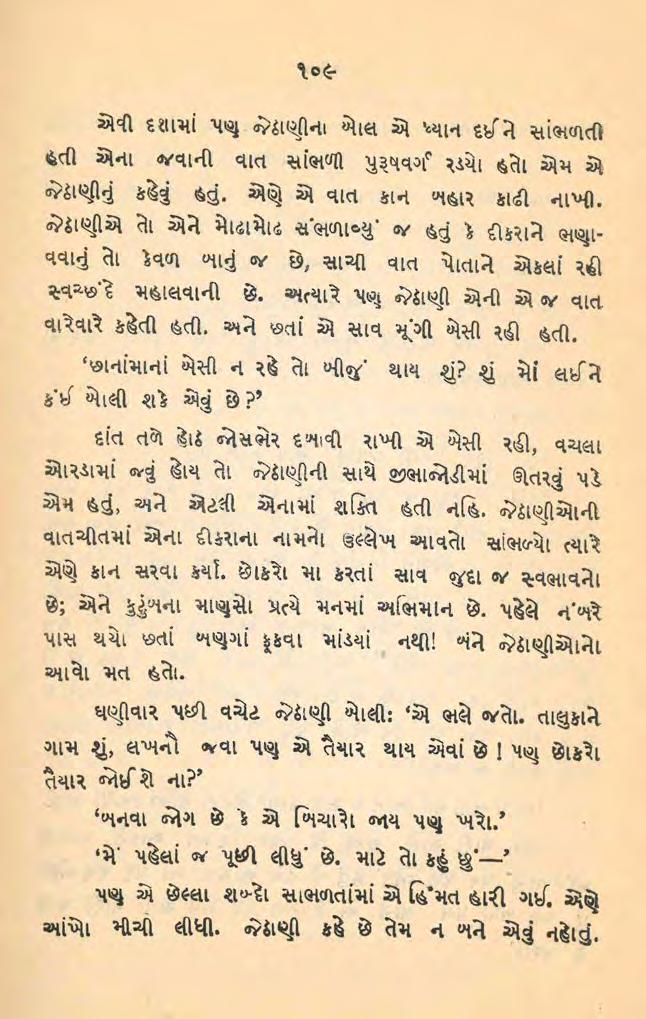 ૧૦૯
એવી દશામાં પણ જેઠાણીના બોલ એ ધ્યાન દઈને સાંભળતી
હતી એના જવાની વાત સાંભળી પુરૂષવર્ગ રડયો હતો એમ એ
જેઠાણીનું કહેવું હતું. એણે એ વાત કાન બહાર કાઢી નાખી.
જેઠાણીએ તો એને મોઢામોઢ સંભળાવ્યું જ હતું કે દીકરાને ભણા-
વવાનું તો કેવળ બાનું જ છે, સાચી વાત પોતાને એકલાં રહી
સ્વચ્છંદે મહાલવાની છે. અત્યારે પણ જેઠાણી એની એ જ વાત
વારેવારે કહેતી હતી. અને છતાં એ સાવ મૂંગી બેસી રહી હતી.
‘છાનાંમાનાં બેસી ન રહે તો બીજું થાય શું? શું મોં લઈને
કંઈ બોલી શકે એવું છે?’
દાંત તળે હોઠ જોસભેર દબાવી રાખી એ બેસી રહી, વચલા
ઓરડામાં જવું હોય તો જેઠાણીની સાથે જીભાજોડીમાં ઊતરવું પડે
એમ હતું, અને એટલી એનામાં શક્તિ હતી નહિ. જેઠાણીઓની
વાતચીતમાં એના દીકરાના નામનો ઉલ્લેખ આવતો સાંભળ્યો ત્યારે
એણે કાન સરવા કર્યા. છોકરો મા કરતાં સાવ જુદા જ સ્વભાવનો
છે; એને કુટુંબના માણસો પ્રત્યે મનમાં અભિમાન છે. પહેલે નંબરે
પાસ થયો છતાં બણગાં ફૂકવા માંડયાં નથી! બંને જેઠાણીઓનો
આવો મત હતો.
ઘણીવાર પછી વચેટ જેઠાણી બોલી: ‘એ ભલે જતો. તાલુકાને
ગામ શું, લખનૌ જવા પણ એ તૈયાર થાય એવાં છે ! પણ છોકરો
તૈયાર જોઈશે ના?’
‘બનવા જોગ છે કે એ બિચારો જાય પણ ખરો.’
‘મેં પહેલાં જ પૂછી લીધું છે. માટે તો કહું છું—’
પણ એ છેલ્લા શબ્દો સાભળતાંમાં એ હિંમત હારી ગઈ. એણે
આંખો મીચી લીધી. જેઠાણી કહે છે તેમ ન બને એવું નહોતું.